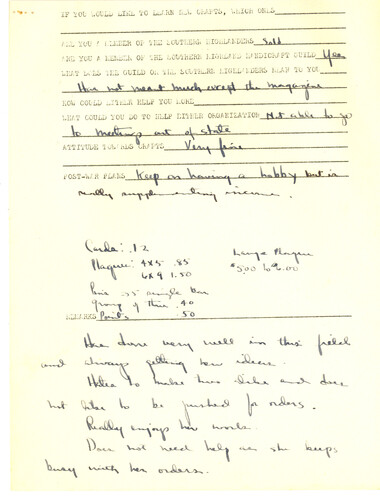 IF YOU WOULD LIKE TO LEARN NEW CRAFTS, WHICH ONES
ARE YOU A MEMBER OF THE SOUTHERN HIGHLANDERS Sold
ARE YOU A MEMBER OF THE SOUTHERN HIGHLAND HANDICRAFT GUILD Yes
WHAT DOES THE GUILD OR THE SOUTHERN HIGHLANDERS MEAN TO YOU
Has not meant much except the magazine
HOW COULD EITHER HELP YOU MORE
WHAT COULD YOU DO TO HELP EITHER ORGANIZATION Not able to go
to meetings out of state
ATTITUDE TOWARDS CRAFTS Very fine
POST-WAR PLANS Keep on having a hobby but is
really supplementing income.
Cards: .12
Plaques: 4x5 .85 Large Plaques
6x9 1.50 $5.00 to $6.00
Pins .35 single
group of three .40
REMARKS Points .50
Has done very well in this field
and always getting new ideas.
Hates to make two alike and does
not like to be pushed for orders.
Really enjoys her work.
Does not need help as she keeps
busy with her orders.